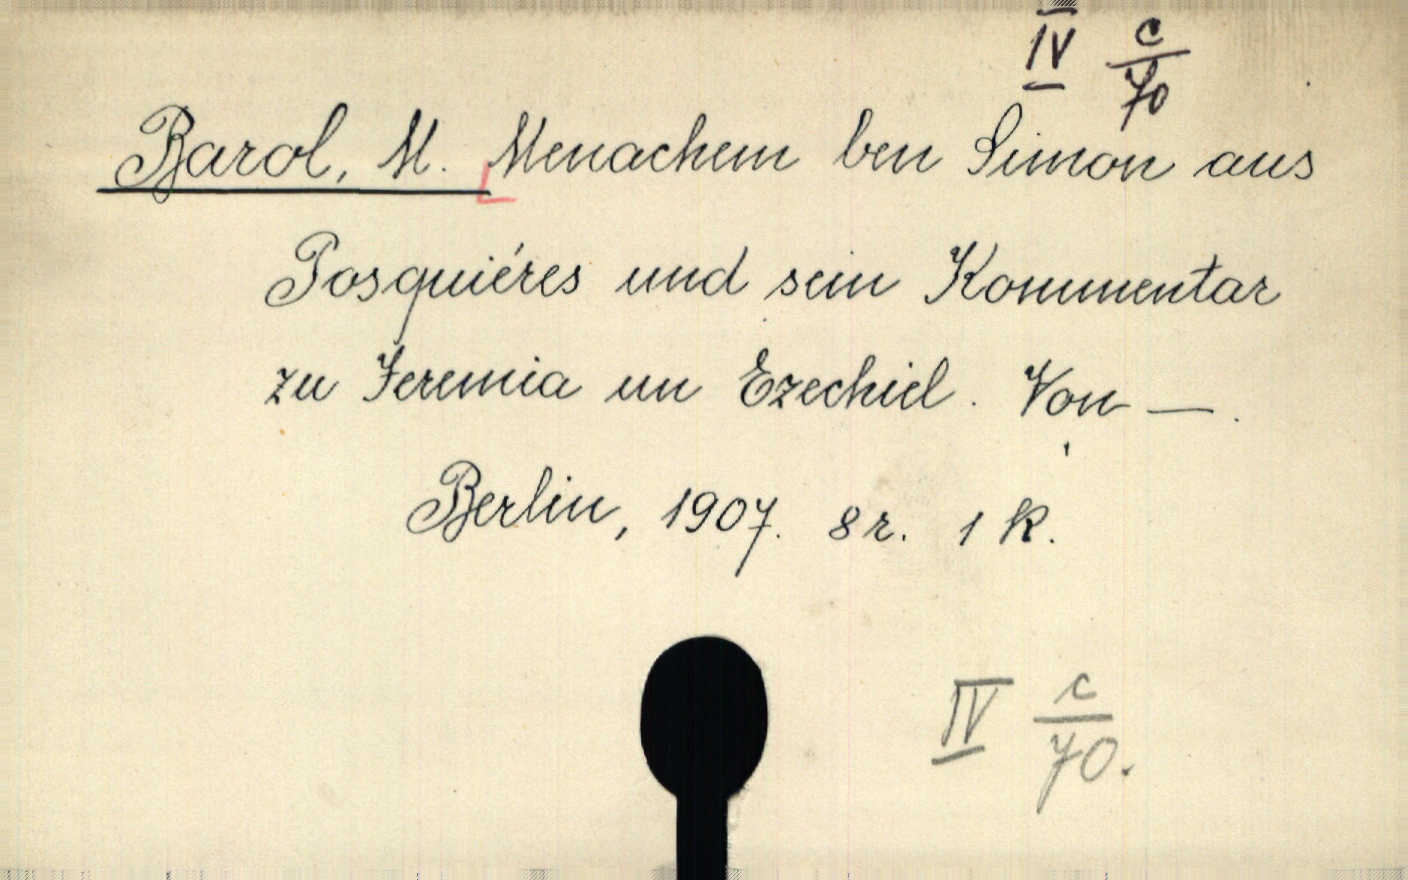 IV c/70
Barol, M. Menachem ben Simon aus
Posquiéres und sein Kommentar
zu Jeremia un Ezechiel. Von —.
Berlin, 1907. 8r. 1 K.
IV c/70.